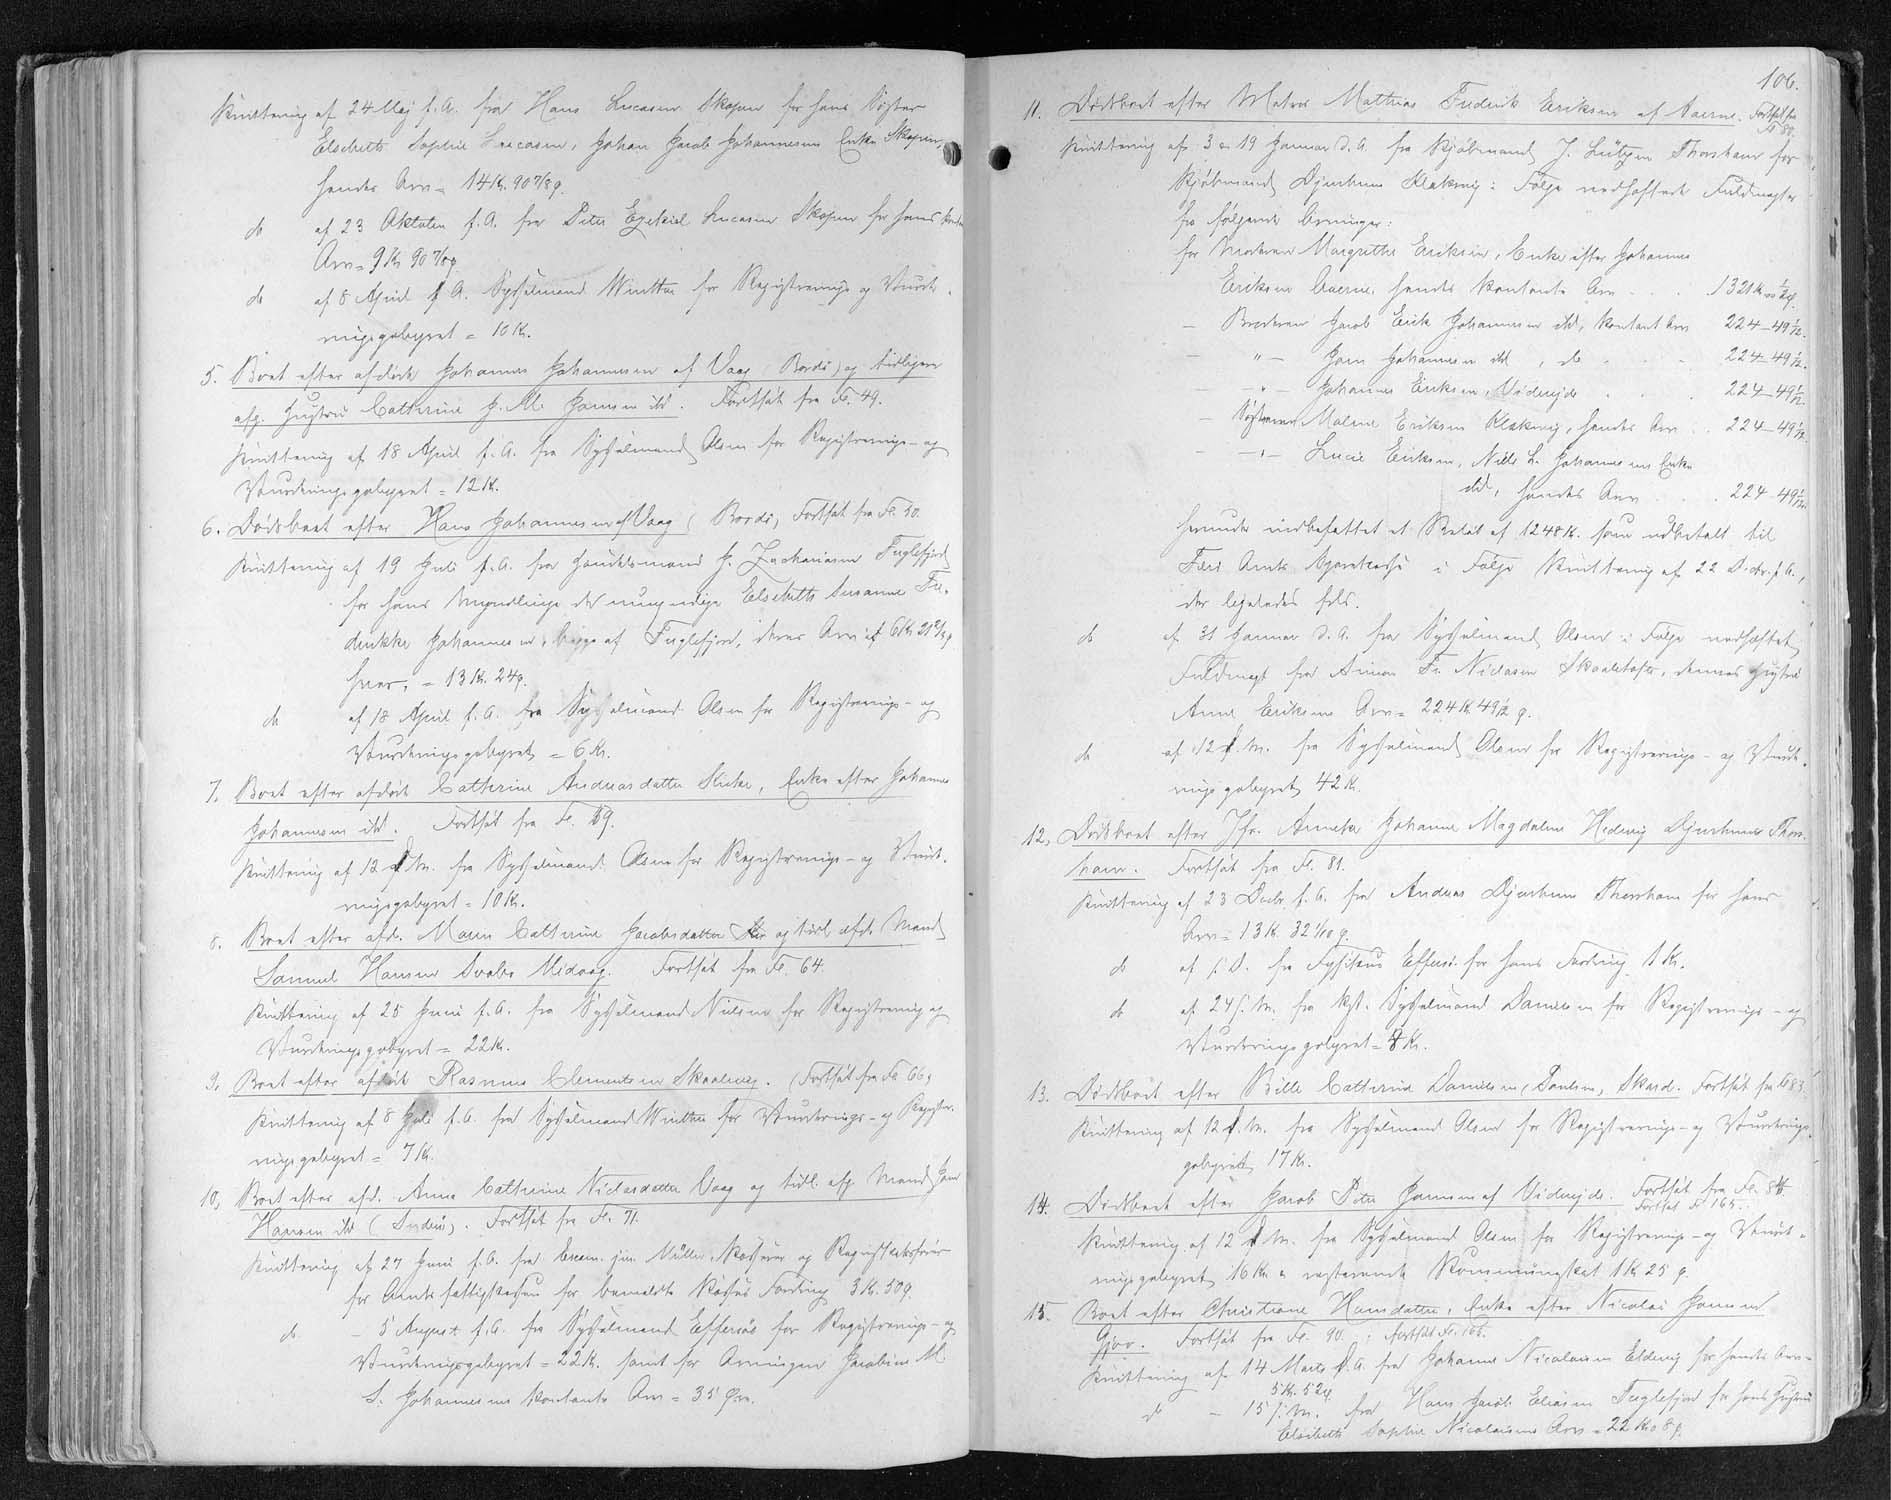 Kvittering af 24 Maj f. A. fra Hans Lucasen Skopen for hans Søster
Elsebeth Sophie Lucasen, Johan Jacob Johannesens Enke Skopen,
hendes Arv = 14 Kr. 90 7/8 ø.
do af 23 Oktober f. A. fra Peter Ezekiel Lucasen Skopen for hans
Arv = 9 Kr 90 7/8 ø
do af 8 April f. A. Sysselmand Winther for Registrerings og Vurde-
ringsgebyret = 10 Kr.
5. Boet efter afdøde Johannes Johannesen af Vaag (Bordø) og tidligere
afg. Hustru Cathrine J. M. Jansen ibd. Fortsat fra Fo. 49.
Kvittering af 18 April f. A. fra Sysselmand Olsen for Registrerings- og
Vurderingsgebyret = 12 Kr.
6. Dødsboet efter Hans Johannesen af Vaag (Bordø) Fortsat fra Fo. 50.
Kvittering af 19 Juli f. A. fra Handelsmand J. Zachariasen Fuglefjord
for hans Myndlinge de umyndige Elsebeth Susanne Fre-
derikke Johannesen, begge af Fuglefjord, deres Arv af 6 Kr 21 ø
hver, = 13 Kr. 24 ø.
do af 18 April f. A. fra Sysselmand Olsen for Registrerings- og
Vurderingsgebyret = 6 Kr.
7. Boet efter afdøde Cathrine Andreasdatter, Enke efter Johannes
Johannesen ibd. Fortsat fra Fo. 59.
Kvittering af 12 f. M. fra Sysselmand Olsen for Registrerings- og Vurde-
ringsgebyret = 10 Kr.
8. Boet efter afd. Maren Cathrine Jacobsdatter og tidl. afd. Mand
Samuel Hansen Svabo Midvaag. Fortsat fra Fo. 64.
Kvittering af 25 Juni f. A. fra Sysselmand Nielsen for Registrering og
Vurderingsgebyret = 22 Kr.
9. Boet efter afdøde Rasmus Clementsen Skaalevig. (Fortsat fra Fo 66)
Kvittering af 8 Juli f. A. fra Sysselmand Winther for Vurderings- og Registre-
ringsgebyret = 7 Kr.
10, Boet efter afd. Anna Cathrine Niclasdatter Vaag og tidl. afg. Mand
Hansen ibd (Suderø). Fortsat fra Fo. 71.
Kvittering af 27 Juni f. A. fra Exam. jur. Müller, Kasserer og Regnskabsfører
for Amtsfattigkassen for bemeldte Kasses Fordring 3 Kr. 50 ø.
do - 5 August f. A. fra Sysselmand Effersøe for Registrerings- og
Vurderingsgebyret = 22 Kr. samt for Arvingen Jacobine M.
S. Johannesens kontante Arv = 35 Øre.
106.
11. Dødsboet efter Matros Mathias Frederik Eriksen af Aaerne. Fortsat fra
Fo 80.
Kvittering af 3 & 19 Januar d. A. fra Kjøbmand J. Lützen Thorshavn for
Kjøbmand Djurhuus Klaksvig i Følge vedheftede Fuldmagter
fra følgende Arvinger:
for Moderen Margrethe Eriksen, Enke efter Johannes
Eriksen Aaerne, hendes kontante Arv . . . 1321 Kr
- Broderen Jacob Erik Johannesen ibd, kontant Arv 224-49 1/12.
- " - Joen Johannesen ibd, do . . . 224-49 1/12.
- " - Johannes Eriksen, Viderejde . . . 224-49 1/12.
- Søsteren Malene Eriksen Klaksvig, hendes Arv . . 224-49 1/12.
- " - Lucie Eriksen, Niels L. Johannesens Enke
ibd, hendes Arv . . . 224-49 1/12.
herunder indbefattet et Beløb af 1248 Kr. som udbetalt til
Færø Amts Sparekasse i Følge Kvittering af 22 Decbr. f. A.,
der ligeledes fdls.
do af 31 Januar d. A. fra Sysselmand Olsen i Følge vedheftet
Fuldmagt fra Simon Fr. Niclasen Skaaletofte, dennes Hustru
Anne Eriksens Arv = 224 Kr 49 1/12 ø.
do af 12 f. M. fra Sysselmand Olsen for Registrerings- og Vurde-
ringsgebyret 42 Kr.
12, Dødsboet efter Jfr. Annette Johanne Magdalene Hedevig Djurhuus Thors-
havn. Fortsat fra Fo. 81.
Kvittering af 23 Decbr. f. A. fra Andreas Djurhuus Thorshavn for hans
Arv = 13 Kr. 32 1/10 ø.
do af s. D. fra Fysikus Effersø for hans Fordring 1 Kr.
do af 24 f. M. fra kgt. Sysselmand Danielsen for Registrerings- og
Vurderingsgebyret = 8 Kr.
13. Dødsboet efter Bille Cathrine Danielsen, Poulsen, Skard. Fortsat fra Fo 83.
Kvittering af 12 f. M. fra Sysselmand Olsen for Registrerings- og Vurderings-
gebyret 17 Kr.
14. Dødsboet efter Jacob Peter Hansen af Viderejde. Fortsat fra Fo. 86.
Fortsat Fo 165.
Kvittering af 12 f. M. fra Sysselmand Olsen for Registrerings- og Vurde-
ringsgebyret 16 Kr & resterende Kommuneskat 1 Kr 25 ø.
15. Boet efter Christiane Hansdatter, Enke efter Nicolai Joensen
Gjov. Fortsat fra Fo. 90. ; fortsat Fo. 166.
Kvittering af 14 Marts f. A. fra Johanne Nicolaisen Eldevig for hendes Arv =
5 Kr. 52 ø
do - 15 s. M. fra Hans Jacob Eliasen Fuglefjord for hans Hustru
Elsebeth Sophie Nicolaisens Arv = 22 Kr 08 ø.